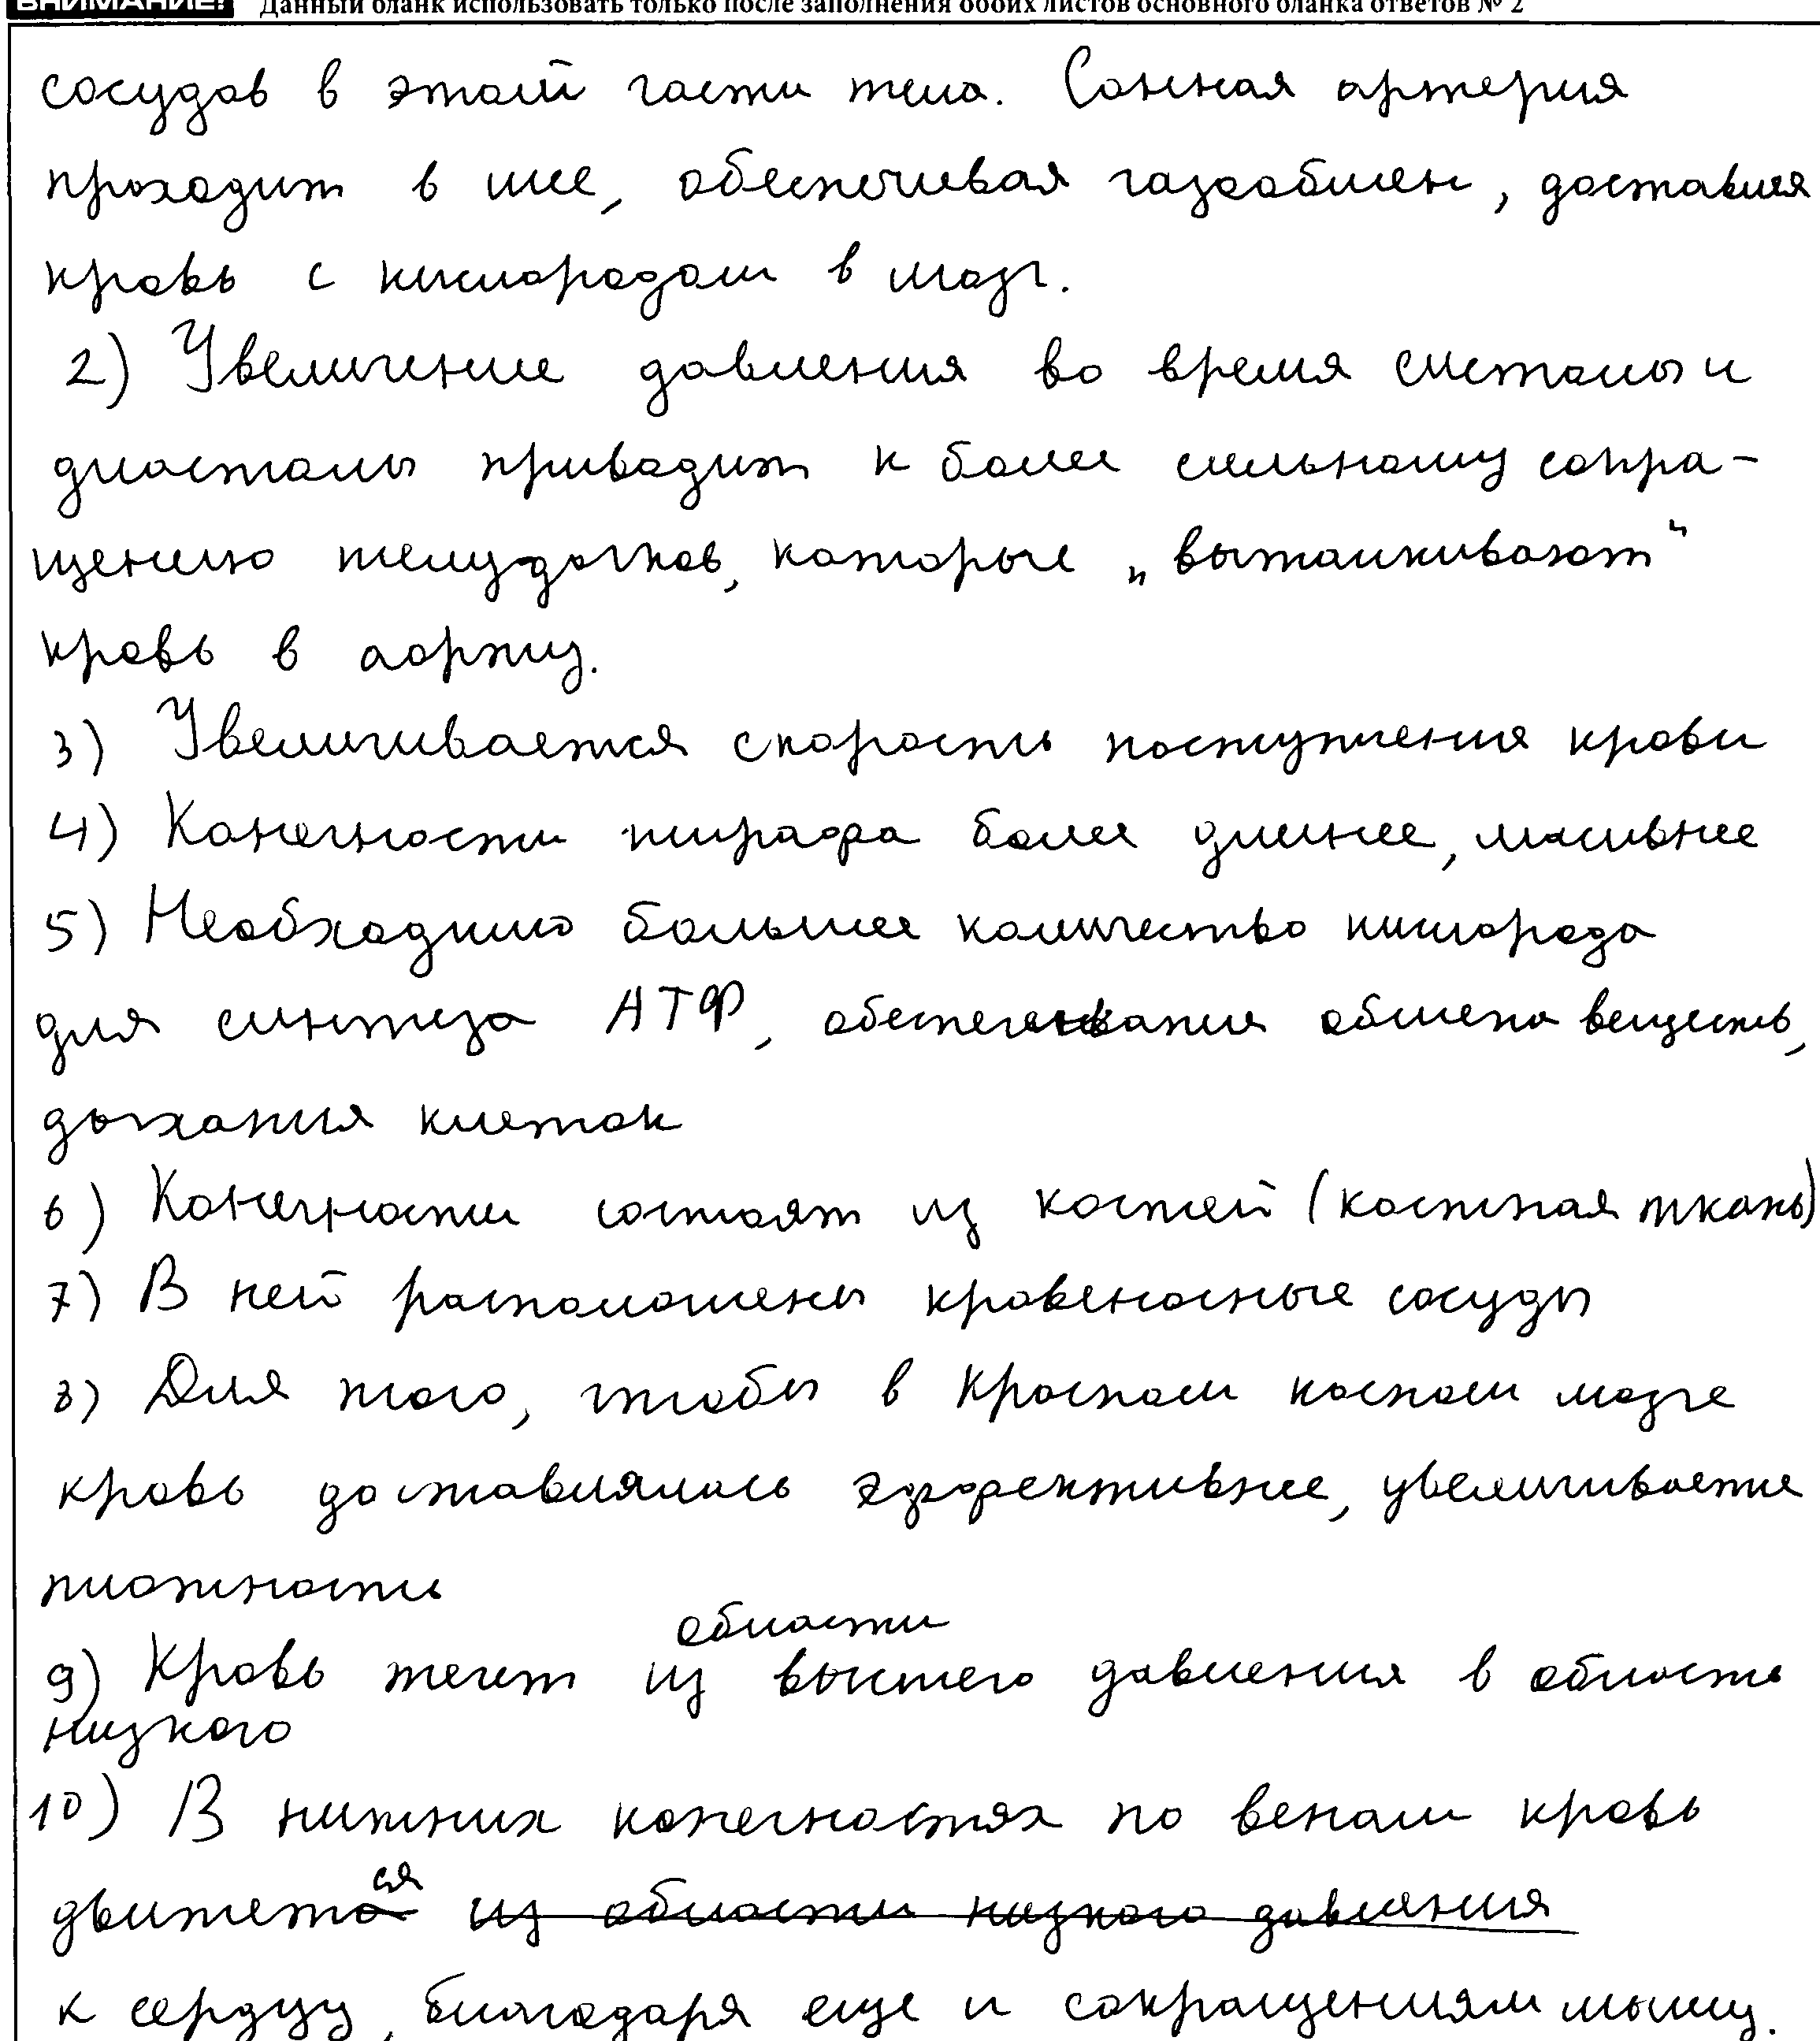 ВНИМАНИЕ! Данный бланк использовать только после заполнения обоих листов основного бланка ответов № 2
сосудов в этой части тела. Сонная артерия
проходит в шее, обеспечивая газообмен, доставляя
кровь с кислородом в мозг.
2) Увеличение давления во время систолы и
диастолы приводит к более сильному сокра-
щению желудочков, которые „выталкивают"
кровь в аорту.
3) Увеличивается скорость поступления крови
4) Конечности жирафа более длинее, масивнее
5) Необходимо большее количество кислорода
для синтеза АТФ, обеспечивания обмена веществ,
дыхания клеток
6) Конечности состоят из костей (костная ткань)
7) В ней расположены кровеносные сосуды
8) Для того, чтобы в красном костном мозге
кровь доставлялась эффективнее, увеличивается
плотность
области
9) Кровь течет из высшего давления в область
низкого
10) В нижних конечностях по венам кровь
движется из области низкого давления
к сердцу, благодаря еще и сокращениям мышц.